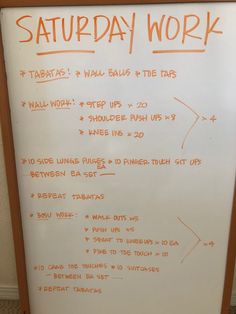 SATURDAY WORK
* TABATAS: * WALL BALLS * TOE TAPS
* WALL WORK: * STEP UPS x 20
* SHOULDER PUSH UPS x 8 > x 4
* KNEE INS x 20
* 10 SIDE LUNGE PULSES EA * 10 FINGER TOUCH SIT UPS
BETWEEN EA SET
* REPEAT TABATAS
* BOSU WORK: * WALK OUTS x5
* PUSH UPS x5
* SQUAT TO KNEEUPS x 10 EA > x 4
* PIKE TO TOE TOUCH x 10
* 10 CRAB TOE TOUCHES * 10 SUITCASES
- BETWEEN EA SET
* REPEAT TABATAS